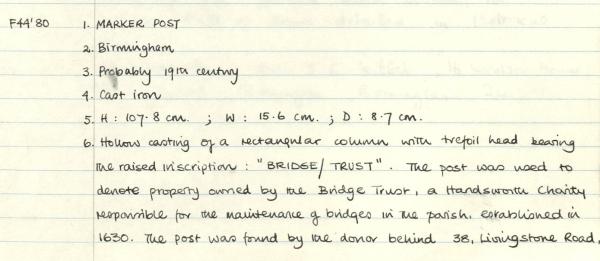 F44'80 1. MARKER POST
2. Birmingham
3. Probably 19th century
4. Cast iron
5. H: 107.8 cm. ; W: 15.6 cm. ; D: 8.7 cm.
6. Hollow casting of a rectangular column with trefoil head bearing
the raised inscription: "BRIDGE/TRUST". The post was used to
denote property owned by the Bridge Trust, a Handsworth Charity
responsible for the maintenance of bridges in the parish, established in
1630. The post was found by the donor behind 38, Livingstone Road,